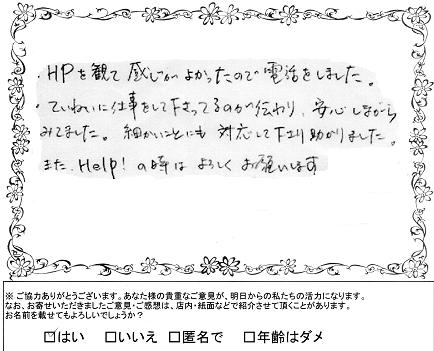 ・HPを観て感じがよかったので電話をしました。
・ていねいに仕事をして下さってるのが伝わり、安心しながら
みてました。細かいことにも対応して下さり助かりました。
また、Help!の時はよろしくお願いします
※ご協力ありがとうございます。あなた様の貴重なご意見が、明日からの私たちの活力になります。
なお、お寄せいただきましたご意見・ご感想は、店内・紙面などで紹介させて頂くことがあります。
お名前を載せてもよろしいでしょうか?
☑はい □いいえ □匿名で □年齢はダメ